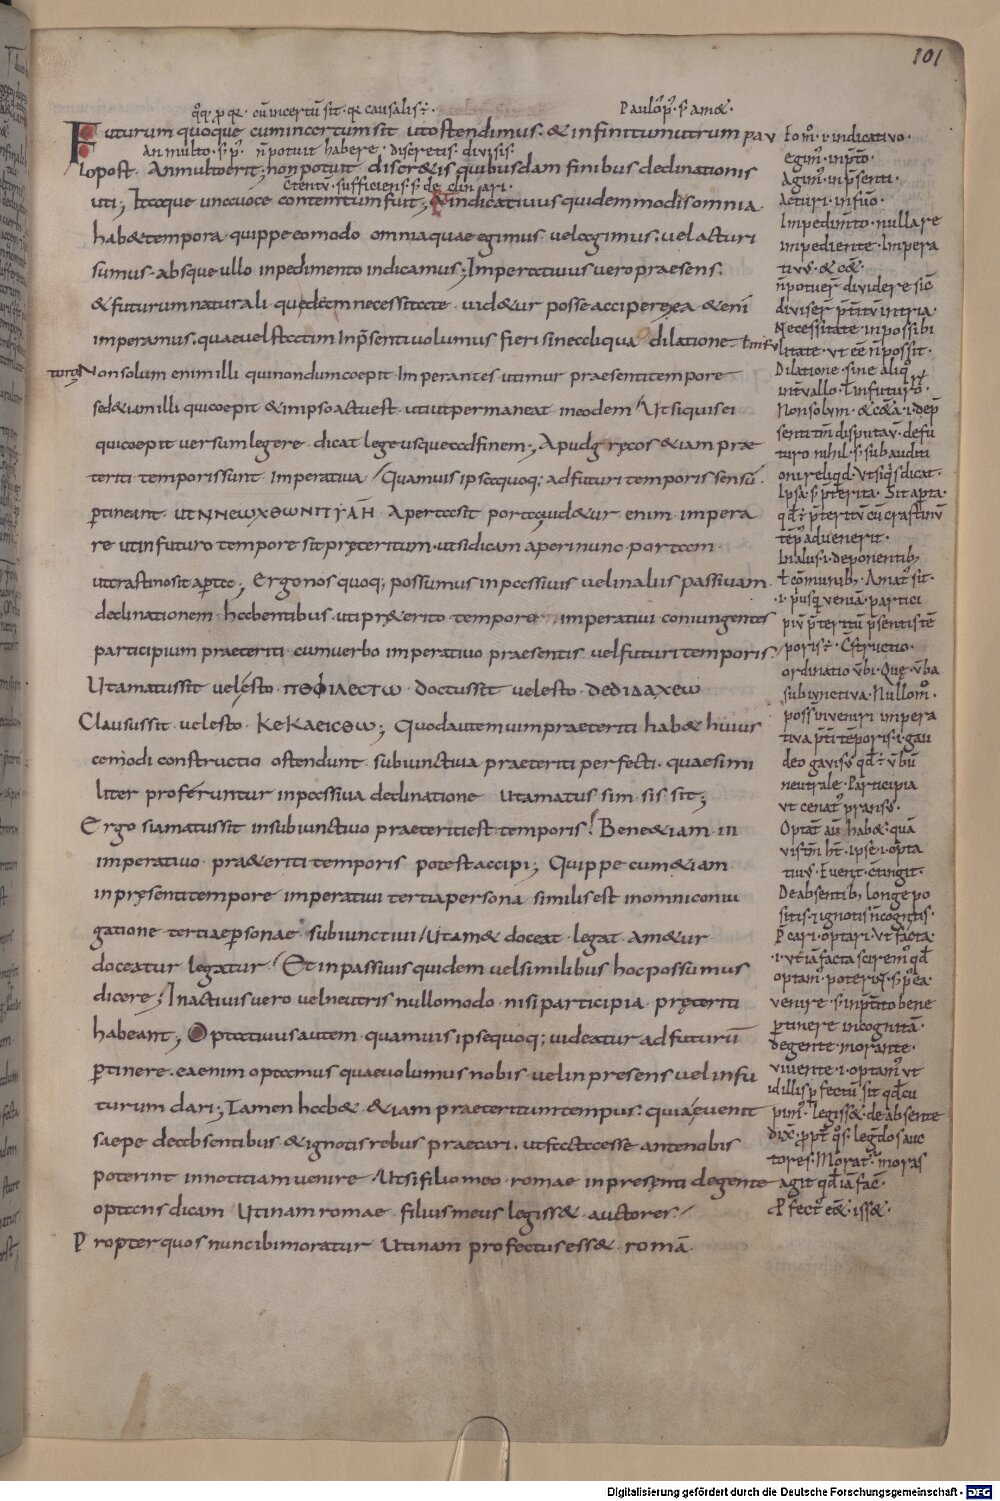 101
qq. p qr. cu incertu sit. qr causalis ÷.
Paulo p. s. am&.
Futurum quoque cum incertum sit ut ostendimus. & infinitum utrum pau
An multo. s. p. n potuit habere. discretis. divisis.
lo post. An multo erit; non potuit discr&is quibusdam finibus declinationis
sufficiens. s. de clinari.
uti; Itaque una uoce contentum fuit; & indicatiuus quidem modis omnia
hab& tempora. quippe eo modo omnia quae egimus. uel agimus. uel acturi
sumus. absque ullo inpedimento indicamus; Imperatiuus uero praesens.
& futurum naturali quadam necessitate uid&ur posse accipere. ea & eni
imperamus. quae uel statim In p̄senti uolumus fieri sine aliqua dilatione. ł in fu
turo; Non solum enim illi qui nondum coepit Imperantes utimur praesenti tempore
sed & iam illi qui coepit & in ipso actu est. ut id permaneat in eodem. Ut si quis ei
qui coepit uersum legere. dicat lege usque ad finem; Apud gręcos & iam prae
teriti temporis sunt Imperatiua. Quamuis ipsa quoq; ad futuri temporis sensū
ꝑtineant. ut ΗΝΕωΧΘωΝΠΥΛΗ. Aperta sit porta. uid&ur enim impera
re ut in futuro tempore sit pręteritum. ut si dicam aperi nunc portam
ut crastino sit aꝑta; Ergo nos quoq; possumus in passiuis uel in aliis passiuam
declinationem habentibus uti pr&erito tempore imperatiui coniungentes
participium praeteriti cum uerbo imperatiuo praesentis uel futuri temporis
Ut amatus sit uel esto. ΠΕΦΙΛΕCΤω doctus sit uel esto. ΔΕΔΙΔΑΧΘω
Clausus sit uel esto. ΚΕΚΛΕΙCΘω; Quod autem uim praeteriti hab& huius
cemodi constructio ostendunt subiunctiua praeteriti perfecti. quae simi
liter proferuntur in passiua declinatione ut amatus sim sis sit;
Ergo si amatus sit in subiunctiuo praeteriti est temporis. Bene & iam in
imperatiuo pra&eriti temporis potest accipi; Quippe cum & iam
in pręsenti tempore imperatiui tertia persona similis est in omni coniu
gatione tertiae ꝑsonae subiunctiui. Ut am& doceat legat am&ur
doceatur legatur. Et in passiuis quidem uel similibus hoc possumus
dicere; In actiuis uero uel neutris nullo modo nisi participia pręteriti
habeant; Optatiuus autem quamuis ipse quoq; uideatur ad futurū
ꝑtinere. ea enim optamus quae uolumus nobis uel in presens uel in fu
turum dari; Tamen hab& & iam praeteritum tempus. quia euenit
saepe de absentibus & ignotis rebus praecari. ut facta esse ante nobis
poterint in notitiam uenire. Ut si filio meo romae in presenti degente
optans dicam Utinam romae filius meus legiss& auctores.
Propter quos nunc ibi moratur Utinam profectus ess& romā.
Eo m̄. i. indicativo.
egim̄. in p̄to.
Agim̄. in p̄senti.
Acturi. in fuō.
Impedim̄to. nulla re
impediente. Impera
tivs. & c&.
n̄ potuer̄ dividere sic
Necessitate. inpossibi
litate. vt ee n̄ possit.
Dilatione. sine aliq
intvallo. ł in futuro.
Non solum. & c&a. i. de p̄
senti tm̄ disputav. de fu
turo nihil. s. subauditi
Ipsa. s. p̄terita. Sit apta.
tēp advenerit.
In aliis. i. deponentib;
ł cōmunib;. Amat sit.
pivm p̄teritū p̄sentis tē
poris ÷. Cstructio.
ordinatio v̄bi. Que. v̄ba
subiunctiva. Nullo m̄.
poss̄ inveniri impera
tiva p̄ti tēporis. i. gau
deo gavisus qd ÷ v̄bū
neutrale. Participia
vt cenat pransus.
Optat au hab&. quā
tivs. Evenit. ctingit.
De absentib; longe po
sitis. ignotis n̄ cognitis.
P̄cari. optari. vt facta.
venire. s. in p̄tito bene
ꝑtinere incognitā.
degente. morante.
vivente. i. optam vt
legiss&. de absente
tores. Morat. moras
ꝑfect ee&. iss&.
Digitalisierung gefördert durch die Deutsche Forschungsgemeinschaft - DFG